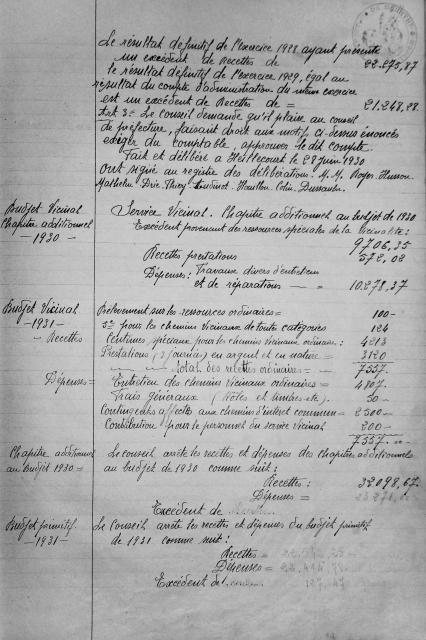 Le résultat définitif de l'exercice 1928 ayant présenté
un excédent de Recettes de 22.275,87
le résultat définitif de l'exercice 1929, égal au
résultat du compte d'administration du même exercice
est un excédent de Recettes de = 21.248,28
Art 3= Le Conseil demande qu'il plaise au conseil
de préfecture, faisant droit aux motifs ci-dessus énoncés
exiger du comptable, approuver le dit compte.
Fait et délibéré à Heillecourt le 28 juin 1930
Ont signé au registre des délibérations: M.M. Royer. Husson
Mathelin. Houillon. Colin. Dussaulx.
Budget Vicinal
Chapitre additionnel
- 1930 -
Service Vicinal. Chapitre additionnel au budget de 1930
Excédent provenant des ressources spéciales de la vicinalité:
9706,35
Recettes prestations 572,02
Dépenses: Travaux divers d'entretien
et de réparations — 10.278,37
Budget Vicinal
- 1931 -
- Recettes
Prélèvement sur les ressources ordinaires = 100 -
pour les chemins vicinaux de toutes catégories 124
Centimes spéciaux pour les chemins vicinaux ordinaires: 4213
Prestations (3 journées) en argent et en nature = 3120
total des recettes ordinaires = 7557.
Dépenses =
Entretien des chemins vicinaux ordinaires = 4807.
Frais généraux (Rôles et timbres etc). 50 -
Contingents affectés aux chemins d'intérêt commun = 2500 -
Contribution pour le personnel du service vicinal 200 -
7557. -
Chapitre additionnel
au budget 1930 =
Le Conseil arrête les recettes et dépenses des Chapitres additionnels
au budget de 1930 comme suit:
Recettes: 32098,67
Dépenses =
Excédent de
Budget primitif
- 1931 -
Le Conseil arrête les recettes et dépenses du budget primitif
de 1931 comme suit:
Recettes =
Dépenses =
Excédent de